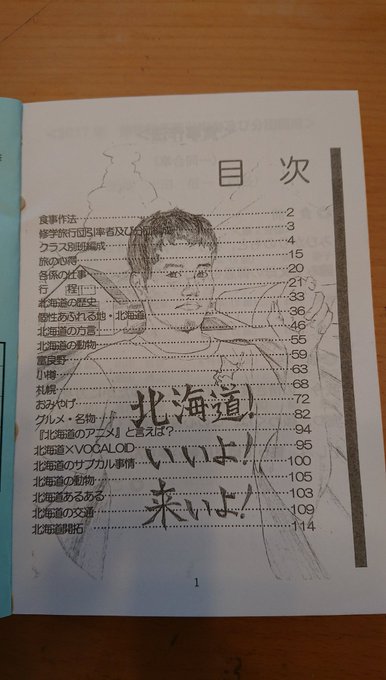 目 次
食事作法 2
修学旅行団引率者及び 3
クラス別班編成 4
旅の心得 15
各係の仕事 20
行 程!! 21
北海道の歴史 33
個性あふれる地・北海道 36
北海道の方言 46
北海道の動物 55
富良野 59
小樽 63
札幌 68
おみやげ 72
グルメ・名物 82
『北海道のアニメ』と言えば? 94
北海道×VOCALOID 95
北海道のサブカル事情 100
北海道の動物 105
北海道あるある 103
北海道の交通 109
北海道開拓 114
北海道!
いいよ!
来いよ!
1